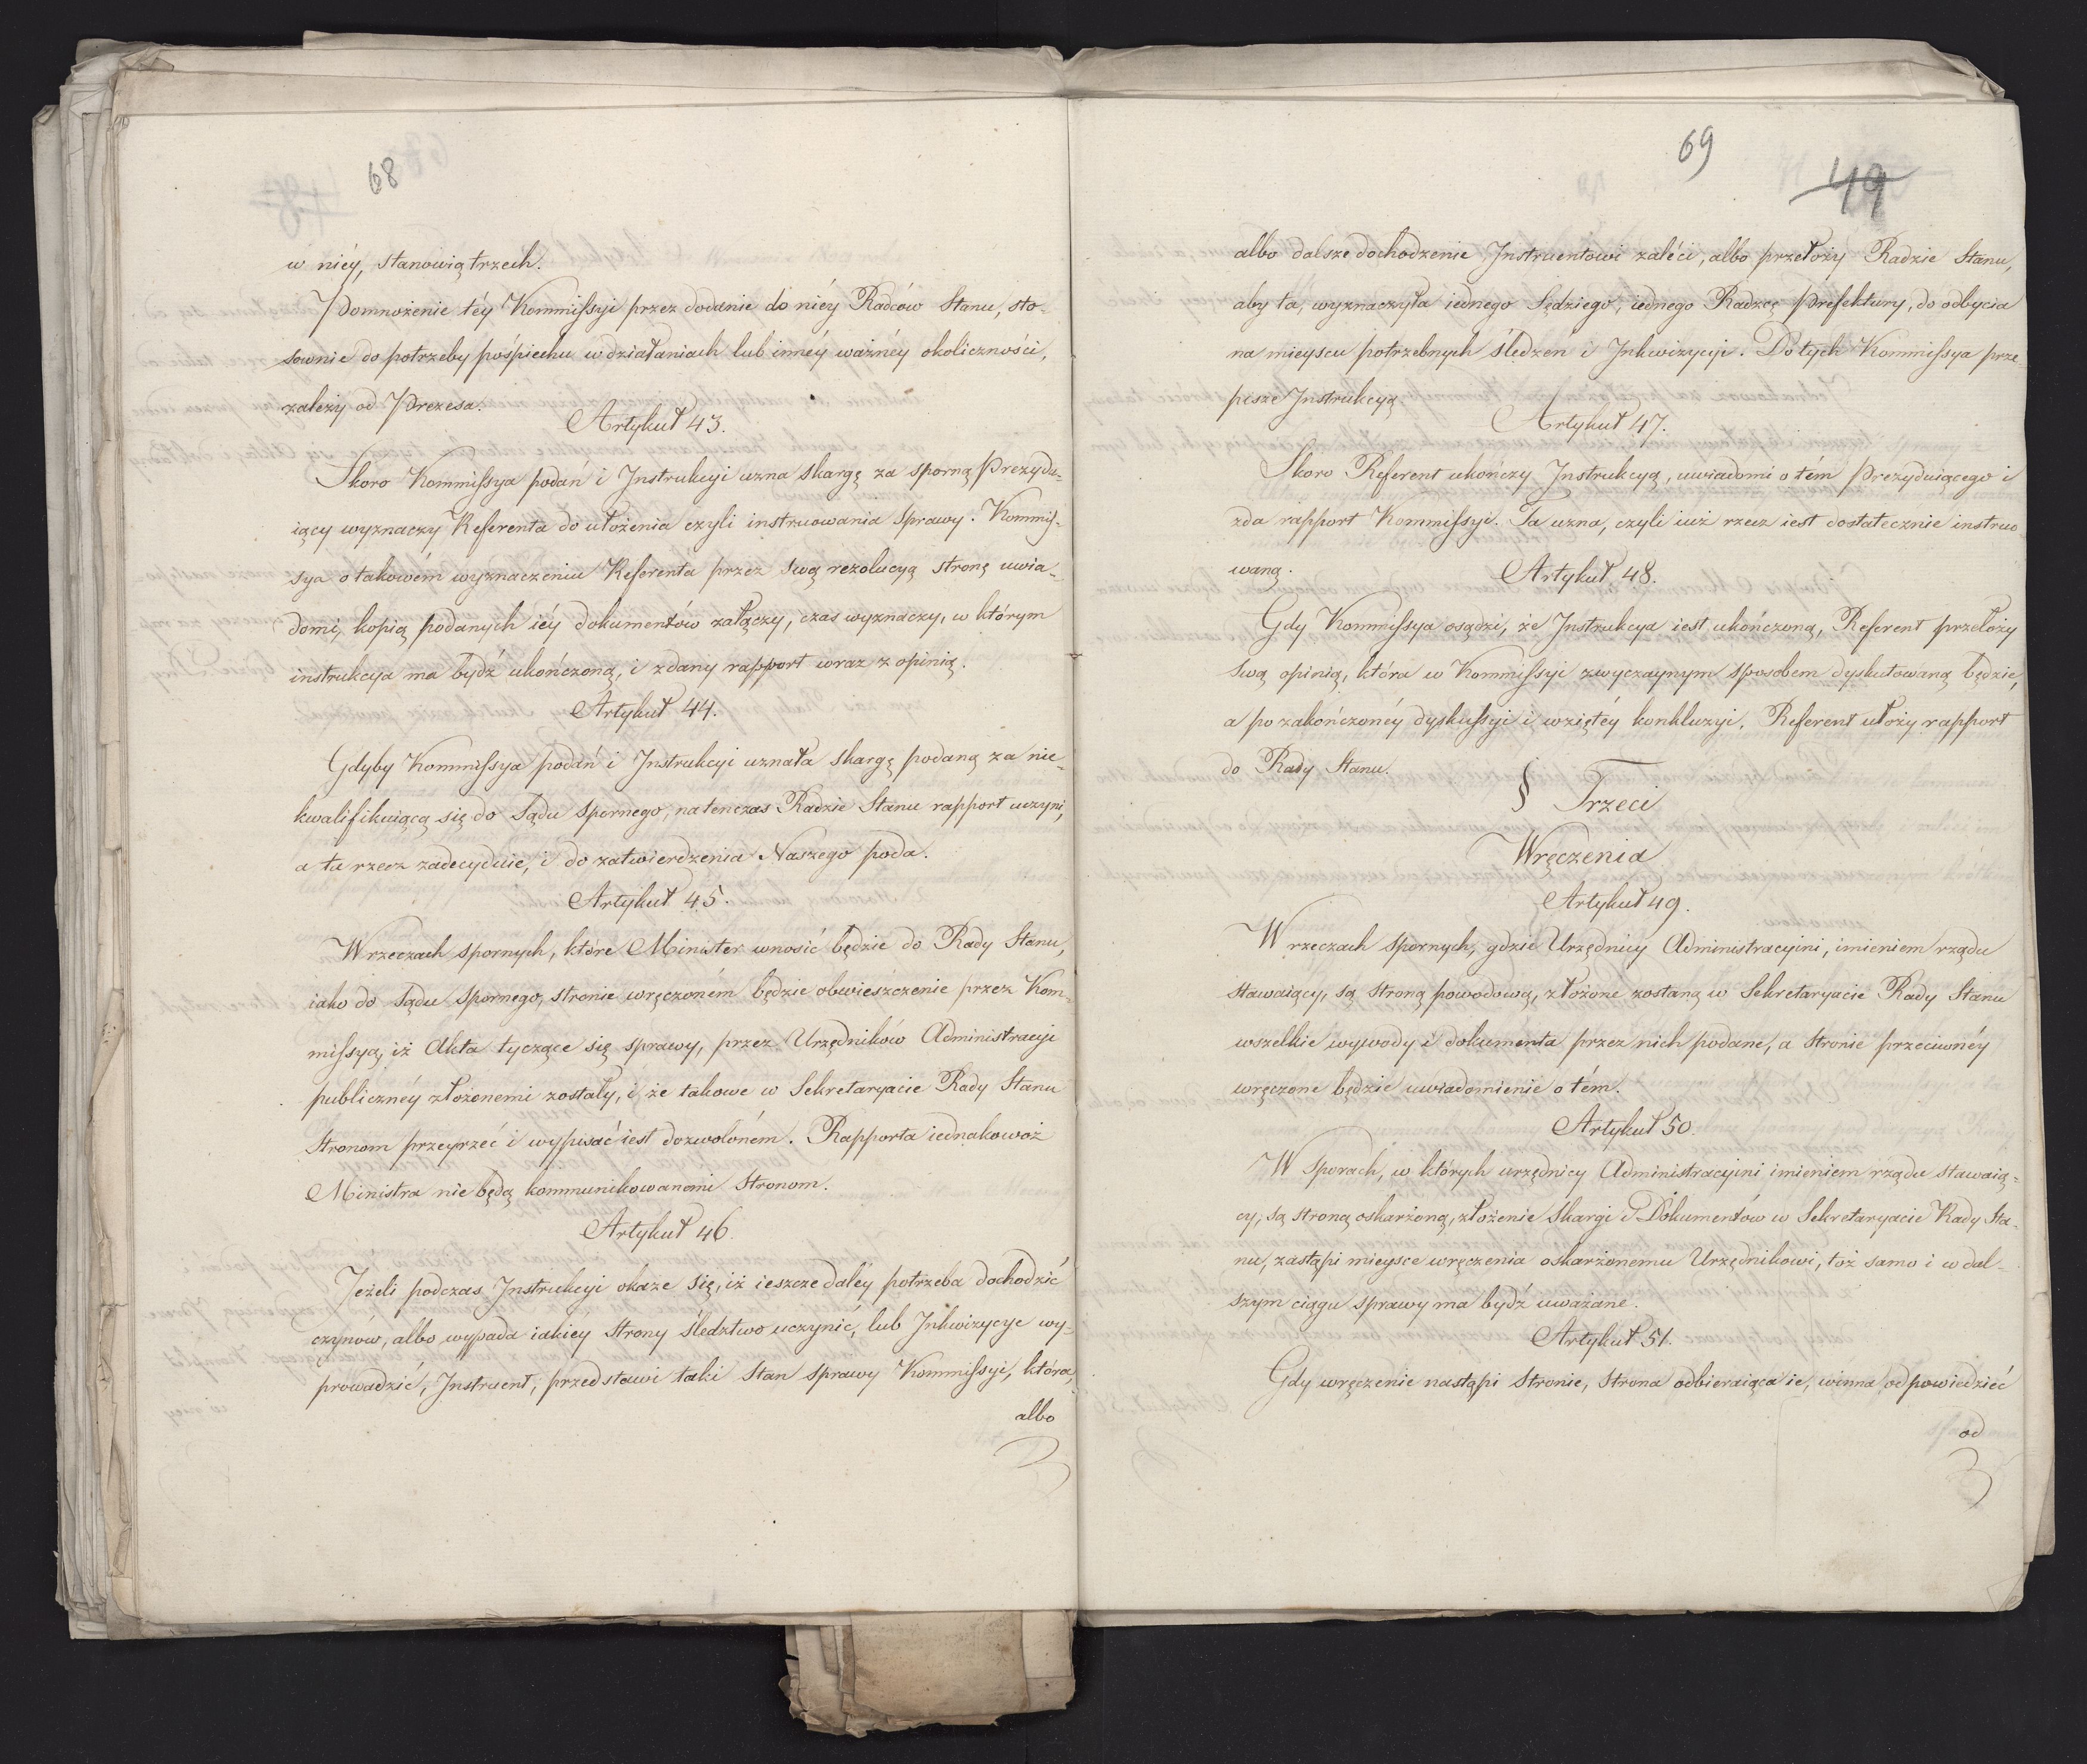 68
w niéy, stanowią trzech.
Pomnożenie téy Kommissyi przez dodanie do niéy Radców Stanu, sto-
sownie do potrzeby pośpiechu w działaniach lub innéy ważnéy okoliczności,
zależy od Prezesa.
Artykuł 43.
Skoro Kommissya podań i Instrukcyi uzna skargę za sporną Prezydu-
iący wyznaczy Referenta do ułożenia czyli instruowania sprawy. Kommis-
sya o takowém wyznaczeniu Referenta przez swą rezolucyą stronę uwia-
domi, kopią podanych iéy dokumentów załączy, czas wyznaczy, w którym
instrukcya ma bydź ukończoną, i zdany rapport wraz z opinią.
Artykuł 44.
Gdyby Kommissya podań i Instrukcyi uznała skargę podaną za nie-
kwalifikuiącą się do Sądu spornego, natenczas Radzie Stanu rapport uczyni,
a ta rzecz zadecyduie, i do zatwierdzenia Naszego poda.
Artykuł 45.
W rzeczach spornych, które Minister wnosić będzie do Rady Stanu,
iako do Sądu spornego, stronie wręczoném będzie obwieszczenie przez Kom-
missyą, iż Akta tyczące się sprawy, przez Urzędników Administracyi
publicznéy złożonemi zostały, i że takowe w Sekretaryacie Rady Stanu
Stronom przeyrzeć i wypisać iest dozwoloném. Rapporta iednakowoż
Ministra nie będą kommunikowanemi Stronom.
Artykuł 46.
Jeżeli podczas Instrukcyi okaże się, iż ieszcze daléy potrzeba dochodzić
czynów, albo wypada iakiey Strony śledztwo uczynić, lub Inkwizycye wy-
prowadzić, Instruent, przedstawi taki stan sprawy Kommissyi, która
albo
69
49
albo dalsze dochodzenie Instruentowi zaléci, albo przełoży Radzie Stanu,
aby ta, wyznaczyła iednego Sędziego, iednego Radzcę Prefektury, do odbycia
na mieyscu potrzebnych śledzeń i Inkwizycyi. Do tych Kommissya prze-
pisze Instrukcyą
Artykuł 47.
Skoro Referent ukończy Instrukcyą, uwiadomi o tém Prezyduiącego i
zda rapport Kommissyi. Ta uzna, czyli iuż rzecz iest dostatecznie instruo
waną.
Artykuł 48.
Gdy Kommissya osądzi, że Instrukcya iest ukończoną, Referent przełoży
swą opinią, która w Kommissyi zwyczaynym sposobem dyskutowaną będzie,
a po zakończonéy dyskussyi i wziętéy konkluzyi, Referent ułoży rapport
do Rady Stanu.
§ Trzeci
Wręczenia
Artykuł 49.
W rzeczach spornych, gdzie Urzędnicy Administracyini, imieniem rządu
stawaiący, są stroną powodową, złożone zostaną w Sekretaryacie Rady Stanu
wszelkie wywody i dokumenta przez nich podane, a stronie przeciwnéy
wręczone będzie uwiadomienie o tém.
Artykuł 50.
W sporach, w których urzędnicy Administracyini imieniem rządu stawaią-
cy, są stroną oskarżoną, złożenie skargi i Dokumentów w Sekretaryacie Rady Sta-
nu, zastąpi mieysce wręczenia oskarżonemu Urzędnikowi, toż samo i w dal-
szym ciągu sprawy ma bydź uważane.
Artykuł 51.
Gdy wręczenie nastąpi Stronie, Strona odbieraiąca ie, winna odpowiedzieć
od